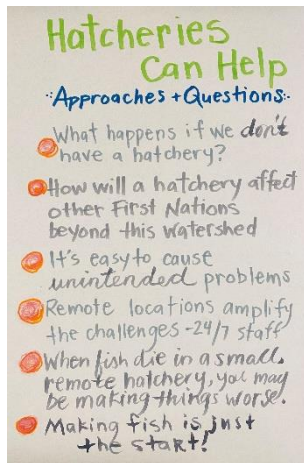 Hatcheries
Can Help
Approaches + Questions
What happens if we don't
have a hatchery?
How will a hatchery affect
other First Nations
beyond this watershed
It's easy to cause
unintended problems
Remote locations amplify
the challenges - 24/7 staff
When fish die in a small,
remote hatchery, you may
be making things worse.
Making fish is just
the start!